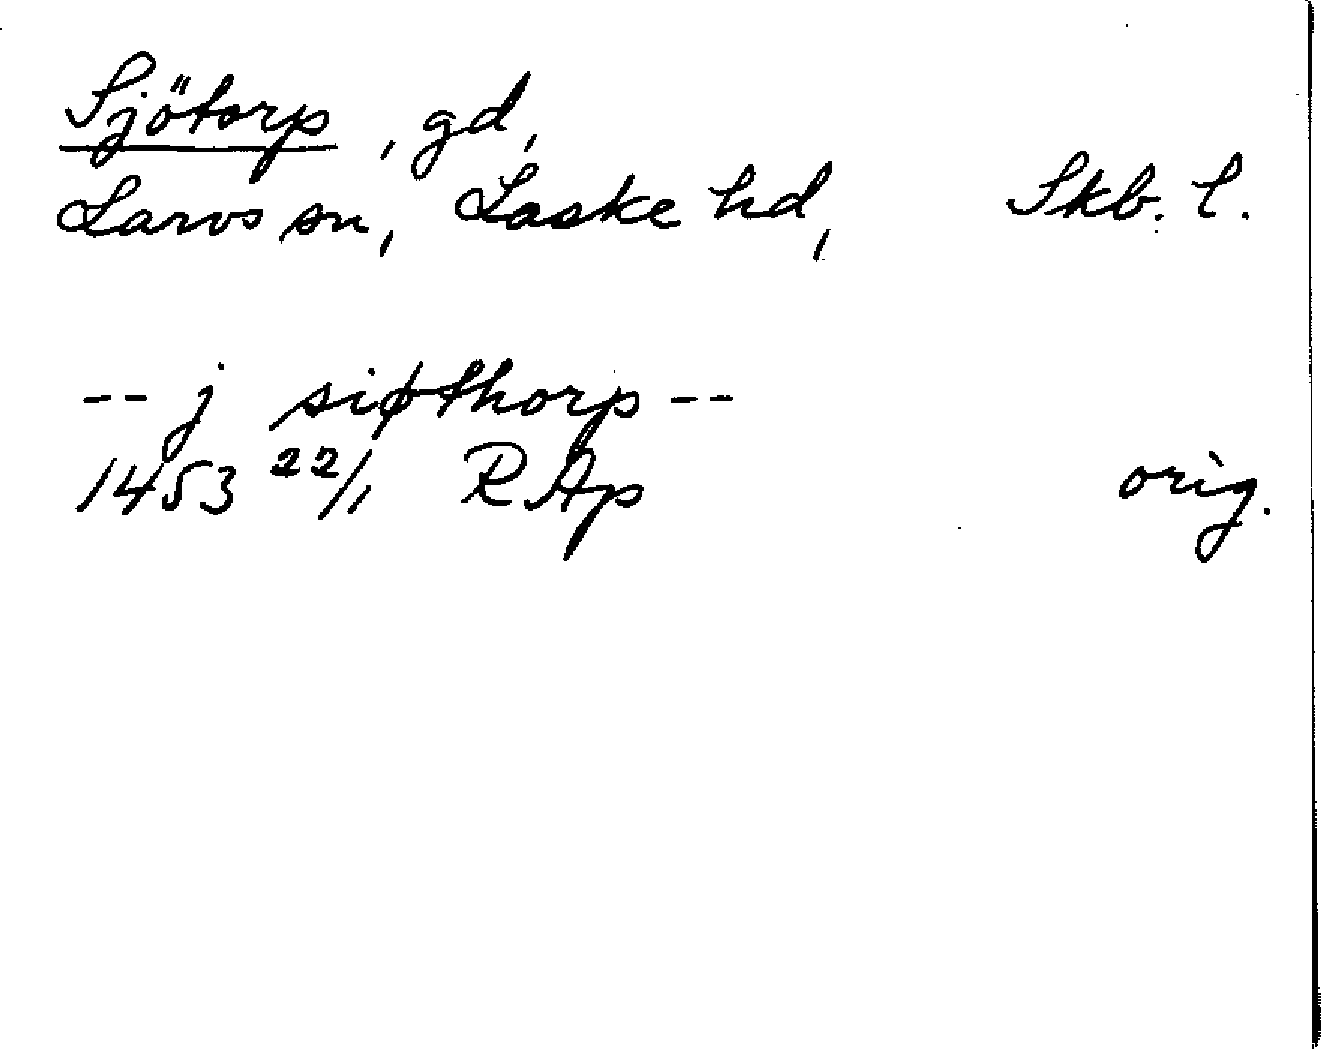 Sjötorp, gd,
Larvs sn, Laske hd, Skb. l.
-- j siøthorp --
1453 22/1 RAp orig.